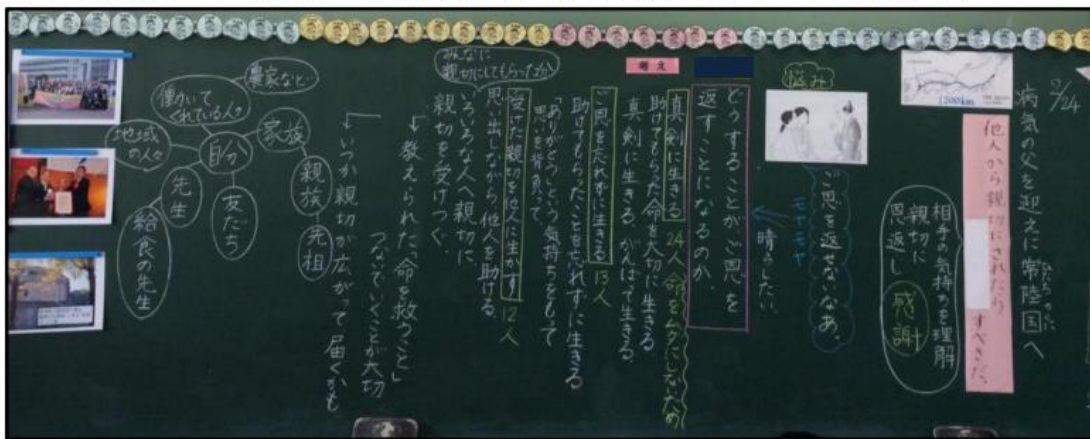 2/24
病気の父を迎えに常陸国へ
ひたちのくに
1200km
他人から親切にされたら
すべきだ。
相手の気持ちを理解
親切に
恩返し
感謝
悩み
ご恩を返せないなあ。
モヤモヤ
晴らしたい。
どうすることがご恩を
返すことになるのか
考え
真剣に生きる 24人 命をムダにしないため
助けてもらった命を大切に生きる
真剣に生きる、がんばって生きる。
ご恩を忘れずに生きる 13人
助けてもらったことを忘れずに生きる
「ありがとう」という気持ちをもって
思いを背負って。
みんなに
親切にしてもらったから
受けた親切を他人に生かす 12人
思い出しながら他人を助ける
いろいろな人へ親切に
親切を受けつぐ。
教えられた「命を救うこと」
つないでいくことが大切
いつか親切が広がって届くかも
自分
家族
親族
先祖
友だち
先生
給食の先生
地域
の人々
働いて
くれている人々
農家など…